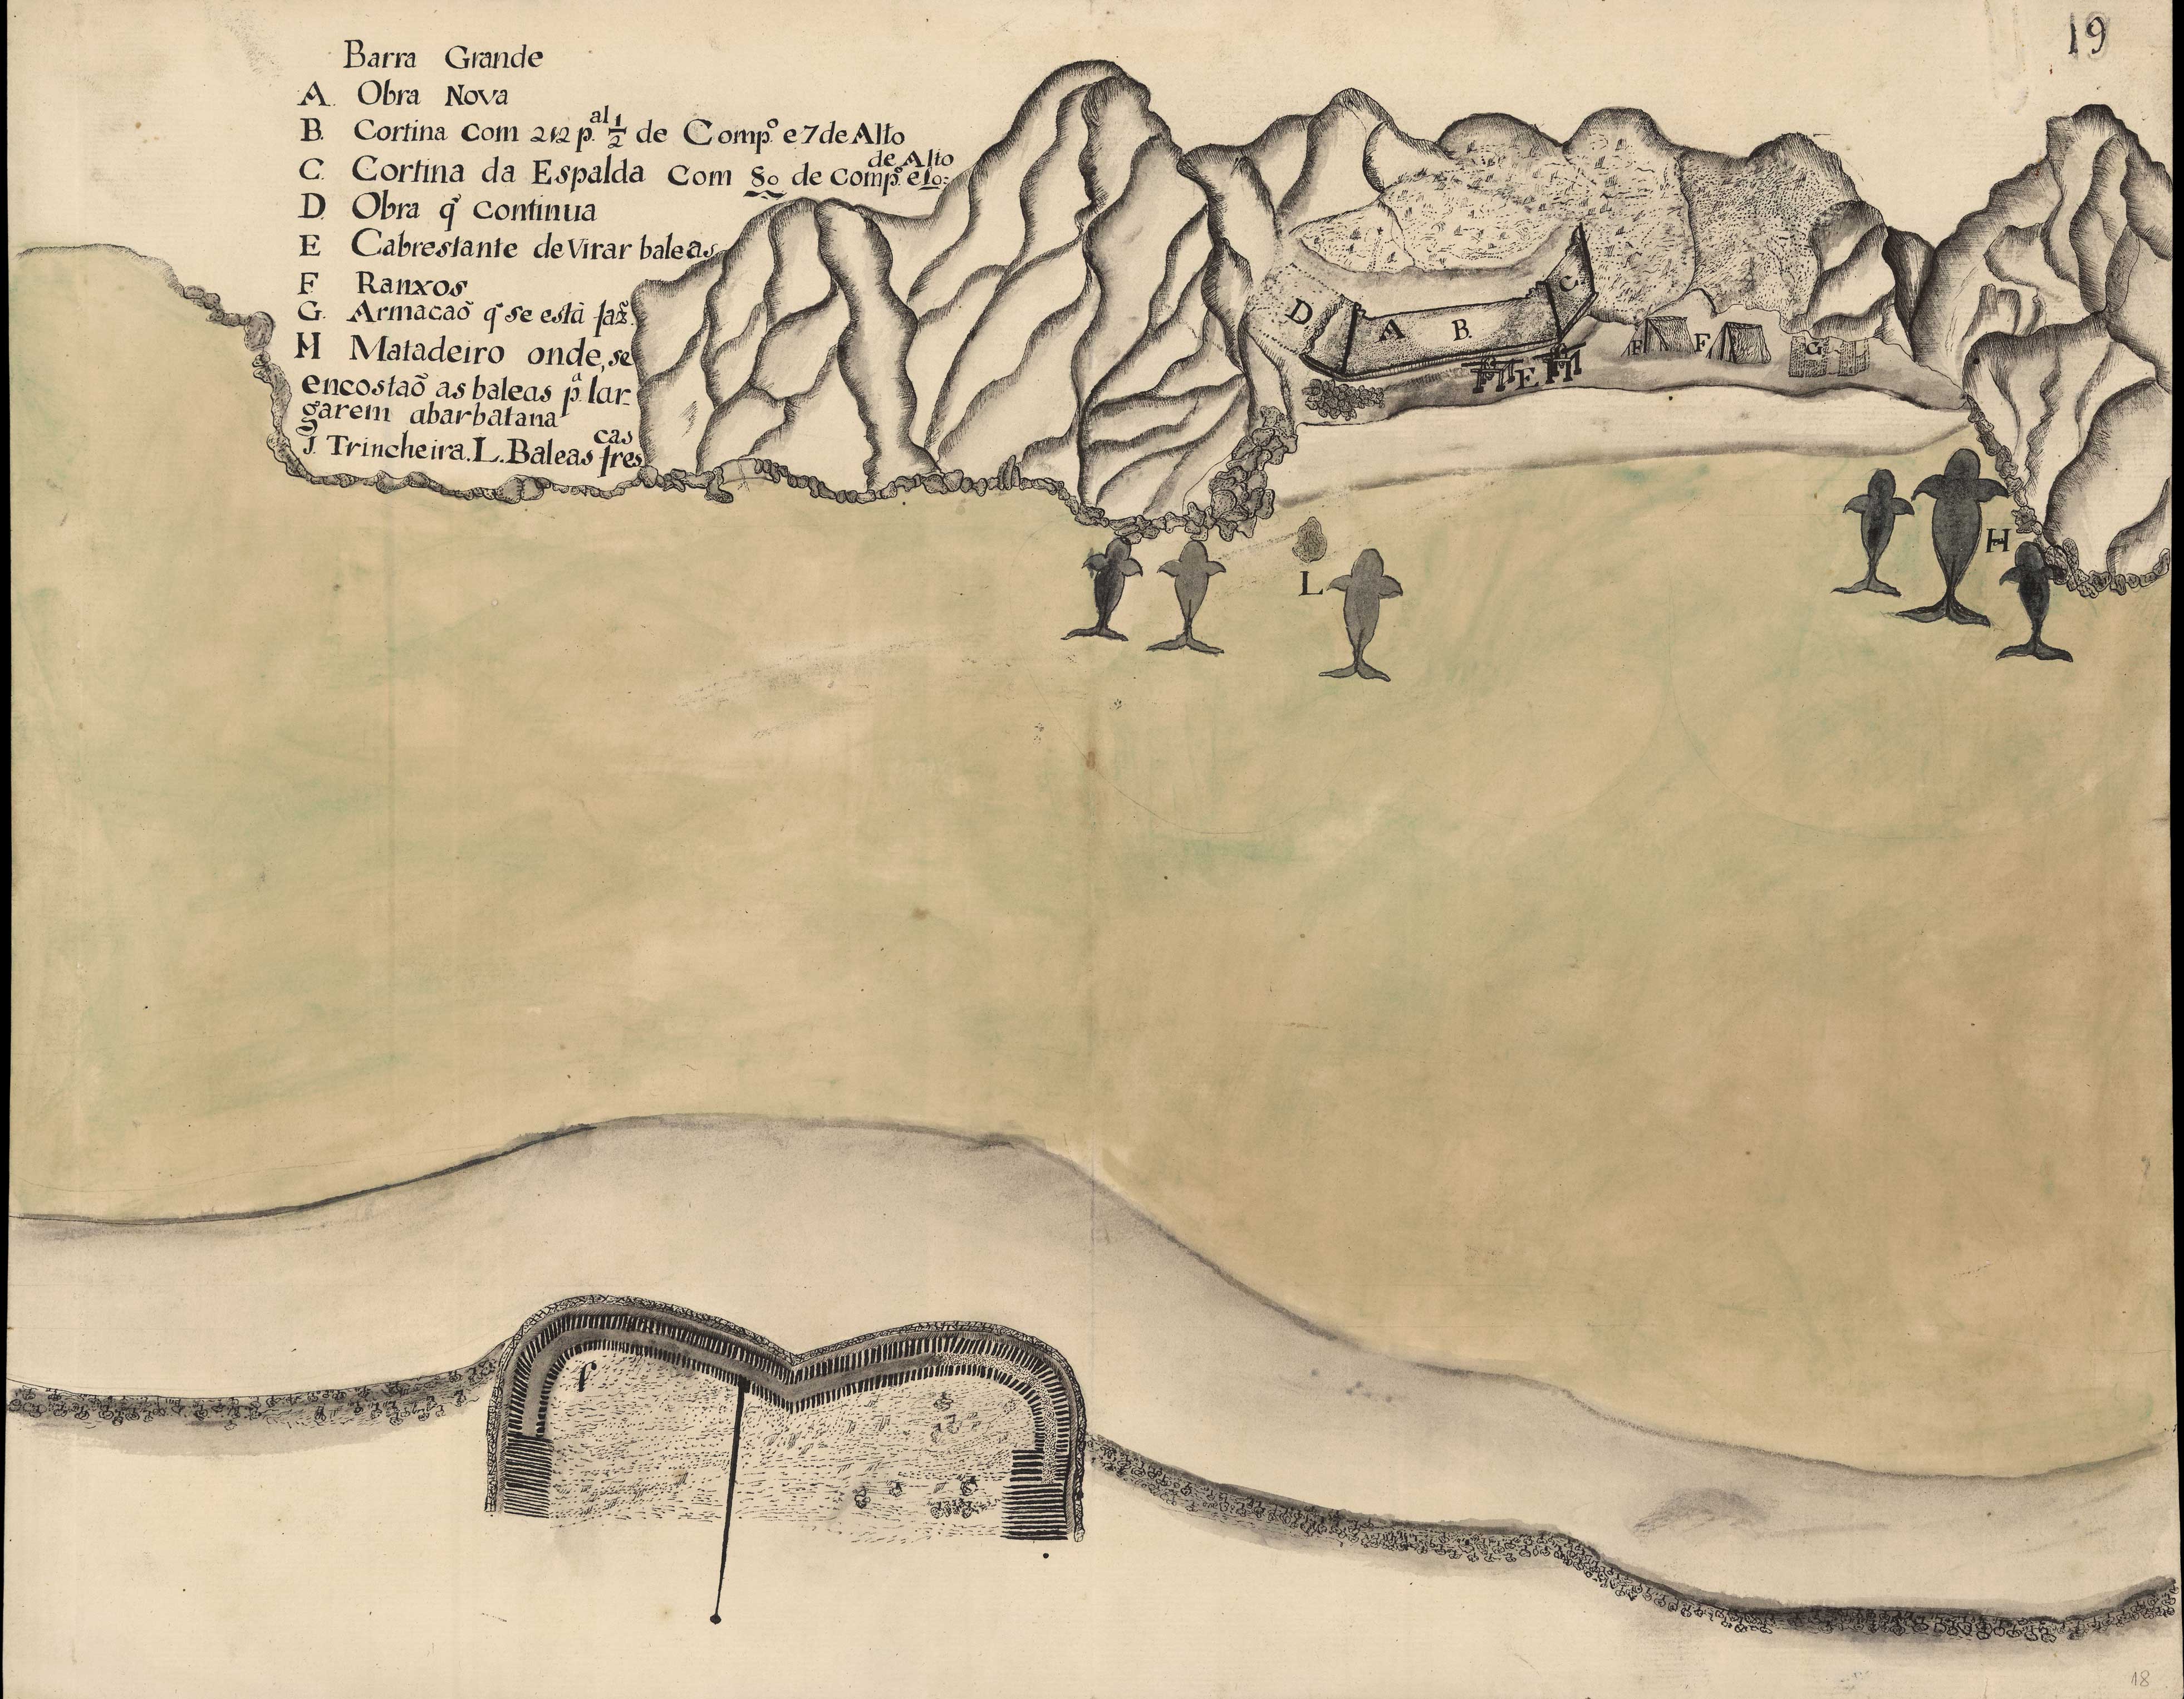 19
Barra Grande
A. Obra Nova
B. Cortina com 212 p.al 1/2 de Comp.o e 7 de Alto
C. Cortina da Espalda com 80 de Comp.o e 10: de Alto
D. Obra q' continua
E Cabrestante de Virar baleas
F. Ranxos
G. Armacaõ q' se està faz.
H Matadeiro onde, se
encostaõ as baleas p.a lar-
garem abarbatana
J. Trincheira. L. Baleas frescas
D A B. C
E F F G
H
L
J
18